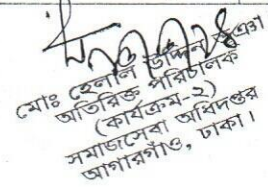 মোঃ হেলাল উদ্দিন ভূঞা
অতিরিক্ত পরিচালক
(কার্যক্রম-২)
সমাজসেবা অধিদপ্তর
আগারগাঁও, ঢাকা।